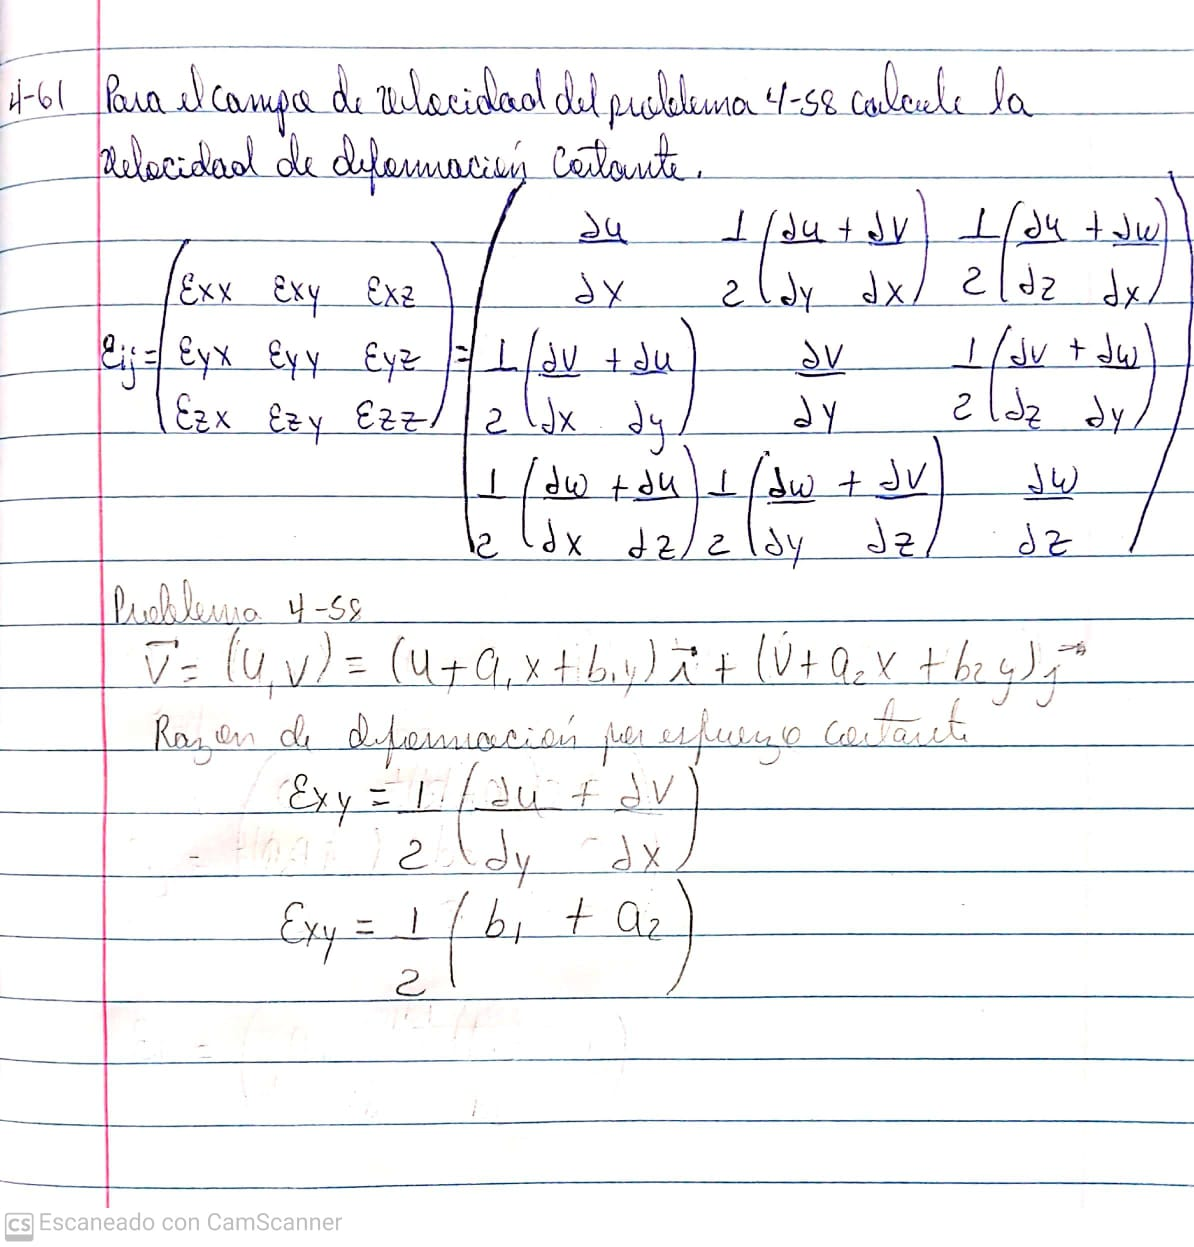 4-61 Para el campo de velocidad del problema 4-58 calcule la
velocidad de deformación cortante.
εij = ( εxx εxy εxz ; εyx εyy εyz ; εzx εzy εzz ) = ( ∂u/∂x 1/2(∂u/∂y + ∂v/∂x) 1/2(∂u/∂z + ∂w/∂x) ; 1/2(∂v/∂x + ∂u/∂y) ∂v/∂y 1/2(∂v/∂z + ∂w/∂y) ; 1/2(∂w/∂x + ∂u/∂z) 1/2(∂w/∂y + ∂v/∂z) ∂w/∂z )
Problema 4-58
V⃗ = (u, v) = (U + a₁x + b₁y) i⃗ + (V + a₂x + b₂y) j⃗
Razon de deformación por esfuerzo cortante
εxy = 1/2 (∂u/∂y + ∂v/∂x)
εxy = 1/2 (b₁ + a₂)
CS Escaneado con CamScanner